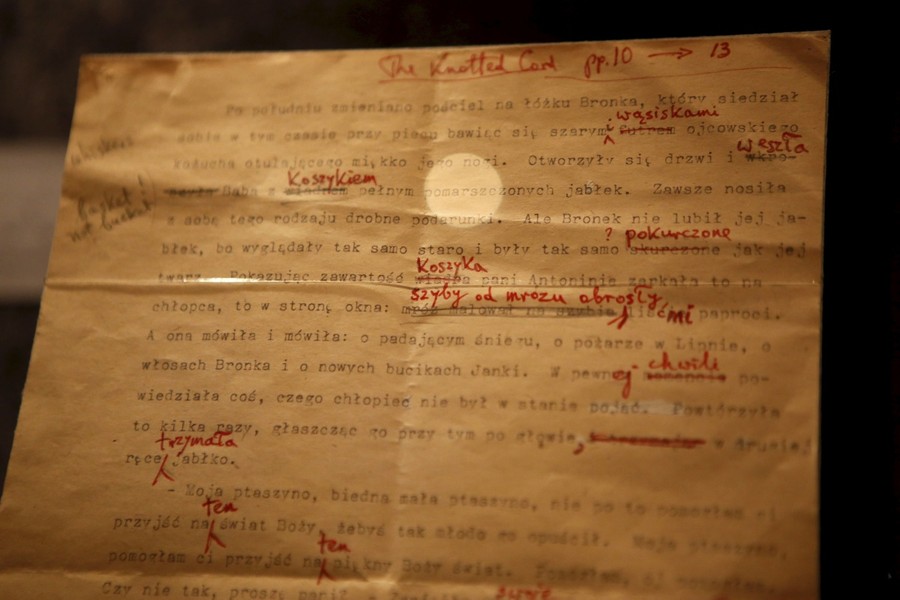 The Knotted Cord pp. 10 → 13
Po południu zmieniano pościel na łóżku Bronka, który siedział
wąsiskami
sobie w tym czasie przy piecu bawiąc się szarymi futrem ojcowskiego
whiskers
weszła
kożucha otulającego miękko jego nogi. Otworzyły się drzwi i wkro-
koszykiem
czyła Baba z wiadrem pełnym pomarszczonych jabłek. Zawsze nosiła
basket!!
not bucket
z sobą tego rodzaju drobne podarunki. Ale Bronek nie lubił jej ja-
? pokurczone
błek, bo wyglądały tak samo staro i były tak samo skurczone jak jej
koszyka
twarz. Pokazując zawartość wiadra pani Antonina zerkała to na
szyby od mrozu obrosły
chłopca, to w stronę okna: mróz malował na szybie liśćmi paproci.
A ona mówiła i mówiła: o padającym śniegu, o pożarze w Lipnie, o
chwili
włosach Bronka i o nowych bucikach Janki. W pewnej po-
wiedziała coś, czego chłopiec nie był w stanie pojąć. Powtórzyła
to kilka razy, głaszcząc go przy tym po głowie, w drugiej
trzymała
ręce jabłko.
- Moja ptaszyno, biedna mała ptaszyno, nie po to pomogłam ci
ten
przyjść na świat Boży, żebyś tak młodo go opuścił. Moja ptaszyno,
ten
pomogłam ci przyjść na piękny Boży świat.
Czy nie tak, proszę pani?